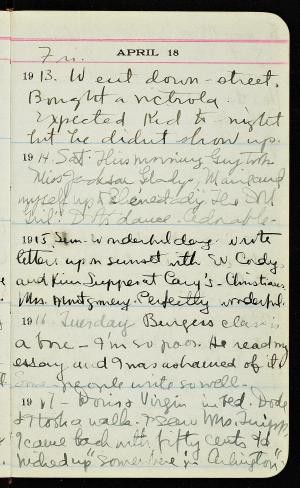 Fri.
APRIL 18
1913. Went down-street.
Bought a victrola.
Expected Kid to-night
but he didn't show up.
1914. Sat. This morning Guy took
Miss Jackson, Gladys, and
myself up to Schenectady. The
dance. Adorable-
1915, Sun. Wonderful day. Wrote
letters up on sunset with
and Supper at Cary's - Christians
Mrs. Montgomery. Perfectly wonderful.
1916 Tuesday Burgess class is
a bore - I'm so poor. He read my
essay and I was ashamed of it
Some people write so well.
1917 - Doris Virgin in bed. Dode
& I took a walk. Saw Mrs.
I came back with fifty cents &
"Somewhere in